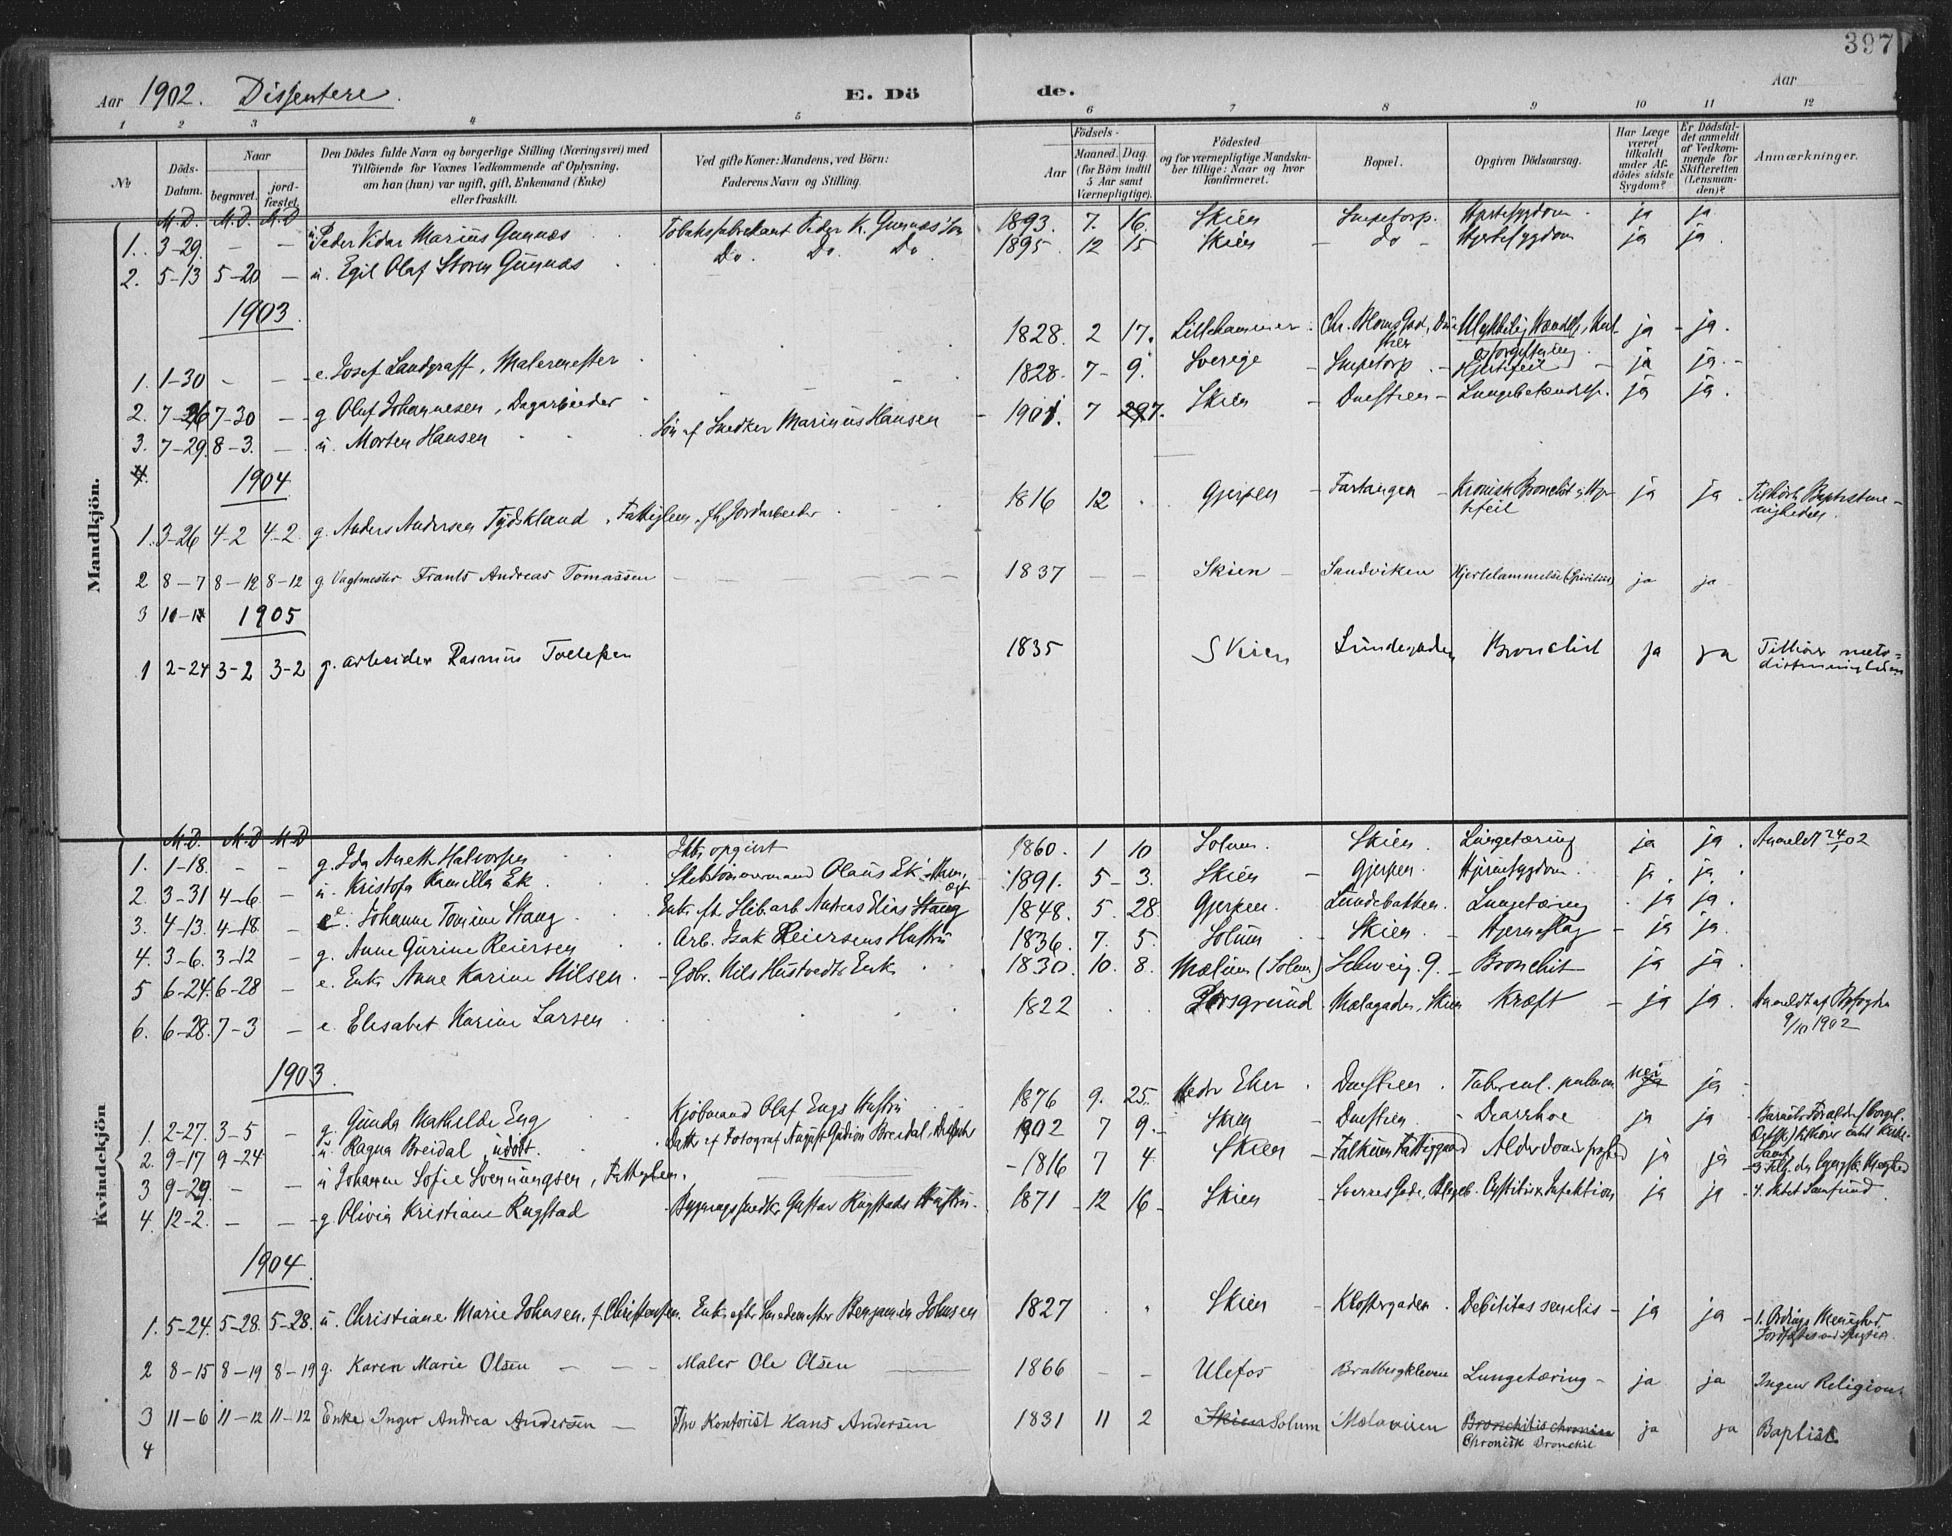 397
Aar 1902. Dissentere. E. Dö de. Aar
1 2 3 4 5 6 7 8 9 10 11 12
No Döds-Datum. Naar begravet. jordfæstet. Den Dödes fulde Navn og borgerlige Stilling (Næringsvei) med Tilföiende for Voxnes Vedkommende af Oplysning, om han (hun) var ugift, gift, Enkemand (Enke) eller fraskilt. Ved gifte Koner: Mandens, ved Börn: Faderens Navn og Stilling. Födsels- Aar Maaned. Dag. (for Börn indtil 5 Aar samt Værnepligtige). Födested og for værnepligtige Mandskaber tillige: Naar og hvor konfirmeret. Bopæl. Opgiven Dödsaarsag. Har Læge været tilkaldt under Afdödes sidste Sygdom? Er Dödsfaldet anmeldt af Vedkommende for Skifteretten (Lensmanden)? Anmærkninger.
Mandkjön.
M.D. M.D. M.D
1. 3-29. – – u. Peder Vidar Marius Gunnæs Tobaksfabrikant Peder K. Gunnæs' Sön 1893. 7. 16. Skien Snipetorp. Hjertesygdom. ja ja
2. 5-13 5-20 – u. Egil Olaf Storm Gunnæs Do. Do. Do. 1895. 12 15 Skien – do – Hjertesygdom ja ja.
1903.
1. 1-30 – – e. Josef Landgraff, Malermester 1828. 2 17. Lillehammer. Chr. Bloms Gad, Ulykkelig Hændelse, Kulosforgiftning. ja – ja.
2. 7-26 7-30 – g Oluf Johannesen, Dagarbeider 1828. 7 – 9. Sverige – Snipetorp. – Hjertefeil – ja ja.
3. 7-29. 8-3. – u. Morten Hansen Sön af Snedker Marinus Hansen – 1901. 7 27. Skien – Duestien – Lungebetændelse. ja ja.
4.
1904
1. 3-26 4-2 4-2. g. Anders Andersen Tydskland, Fattiglem, fh. Jordarbeider 1816 12 Gjerpen – Fartangen – Kronisk Bronchit & Hjertefeil ja ja Tilhörte Baptistmenigheden.
2 8-7 8-12 8-12 g Vagtmester Frants Andreas Tomassen 1837 – – Skien – Sandviken Hjertelammelse ja ja
3 10-17
1905
1 2-24 3-2 3-2 g. arbeider Rasmus Tollefsen 1835 Skien Lundegaden Bronchit ja ja Tilhörer metodistmenigheden
Kvindekjön
M.D. M.D M.D
1. 1-18. – – g. Ida Anette Halvorsen Ikke opgivet 1860. 1 10 Solum. Skien. Lungetæring ja ja. Anmeldt 24/1 02
2. 3-31 4-6 – u. Kristofa Kamilla Ek. Olaus Ek 1891. 5 – 3. Skien – Gjerpen. Hjernesygdom. ja. ja.
3. 4-13. 4-18 – e. Johanne Tomine Stang Enke ft. Slibarb Andreas Elias Stang 1848. 5. 28 Gjerpen. Lundebakken. Lungetæring ja ja.
4. 3-6. 3-12 – g. Anne Gurine Reiersen Arb. Isak Reiersens Hustru 1836. 7. 5. Solum – Skien. – Hjerneslag – ja ja.
5 6-24. 6-28 – e. Enke Anne Karine Nilsen. – Gbr. Nils Hustvedts Enke 1830. 10. 8. Mælum (Solum) Schweig. 9. – Bronchit ja ja.
6. 6-28. 7-3 – e. Elisabet Karine Larsen 1822 Porsgrund Mælagaden, Skien Kræft – ja ja. Anmeldt af Byfogden 9/10 1902
1903.
1. 2-27. 3-5 – g. Gunda Mathilde Eng Kjöbmand Olaf Engs Hustru 1876 9. 25. Nedre Eker. Duestien. Tubercul. pulmon. nei ja
2. 9-17 9-24 – u Ragna Breidal, udöbt. Datter af Fotograf August Gudion Breidal, Dissenter 1902 7 9. Skien – Duestien – Diarrhoe ja ja
3 9-29. – – u Johanne Sofie Svennungsen, Fattiglem. – 1816 7 4. Skien – Falkum Fattiggaard Alderdomssvaghed ja ja
4. 12-2. – – g. Olivia Kristiane Rugstad Bygningssnedker Gustav Rugstads Hustru. 1871 – 12 16 – Skien – Sverres Gade, Cystitis & Infektion ja ja
1904.
1. 5-24. 5-28. 5-28. u. Christiane Marie Johnsen, f. Christensen. Enke efter Smedemester Benjamin Johnsen 1827 Skien – Klostergaden. Debilitas senilis – ja ja
2 8-15 8-19 8-19 g. Karen Marie Olsen – – Maler Ole Olsen 1866 – – Ulefos Bratbergkleven Lungetæring – ja ja Ingen Religion.
3 11-6 11-12 11-12 Enke Inger Andrea Andersen – Fhv Kontorist Hans Andersen 1831 11 2 Skien Solum Mælaveien Bronchitis chronica Chronisk Bronchit ja ja Baptist
4